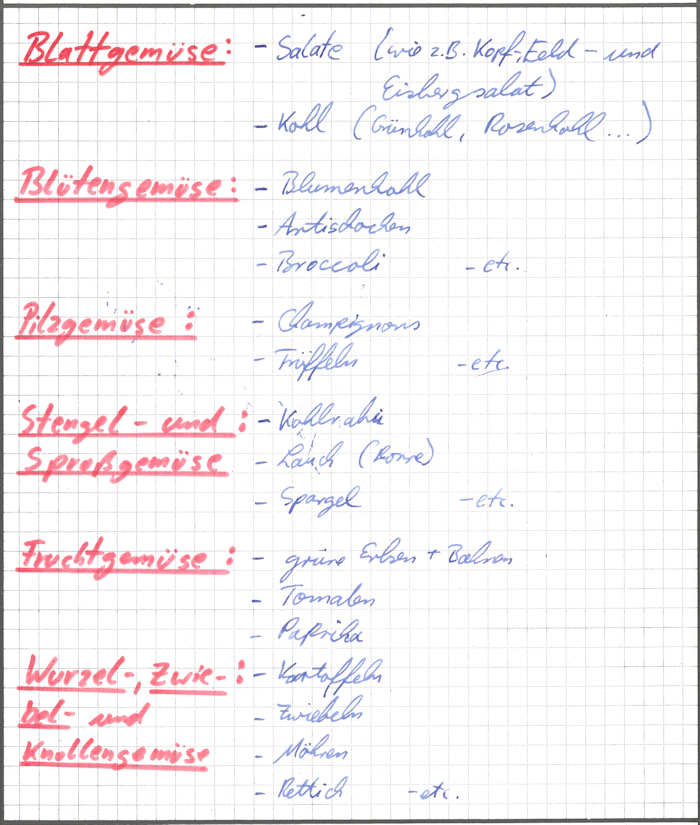 Blattgemüse: - Salate (wie z.B. Kopf-, Feld- und
Eisbergsalat)
- Kohl (Grünkohl, Rosenkohl...)
Blütengemüse: - Blumenkohl
- Artischocken
- Broccoli - etc.
Pilzgemüse: - Champignons
- Trüffeln - etc.
Stengel- und : - Kohlrabi
Sproßgemüse - Lauch (Porre)
- Spargel - etc.
Fruchtgemüse: - grüne Erbsen + Bohnen
- Tomaten
- Paprika
Wurzel-, Zwie-: - Kartoffeln
bel- und - Zwiebeln
Knollengemüse - Möhren
- Rettich - etc.